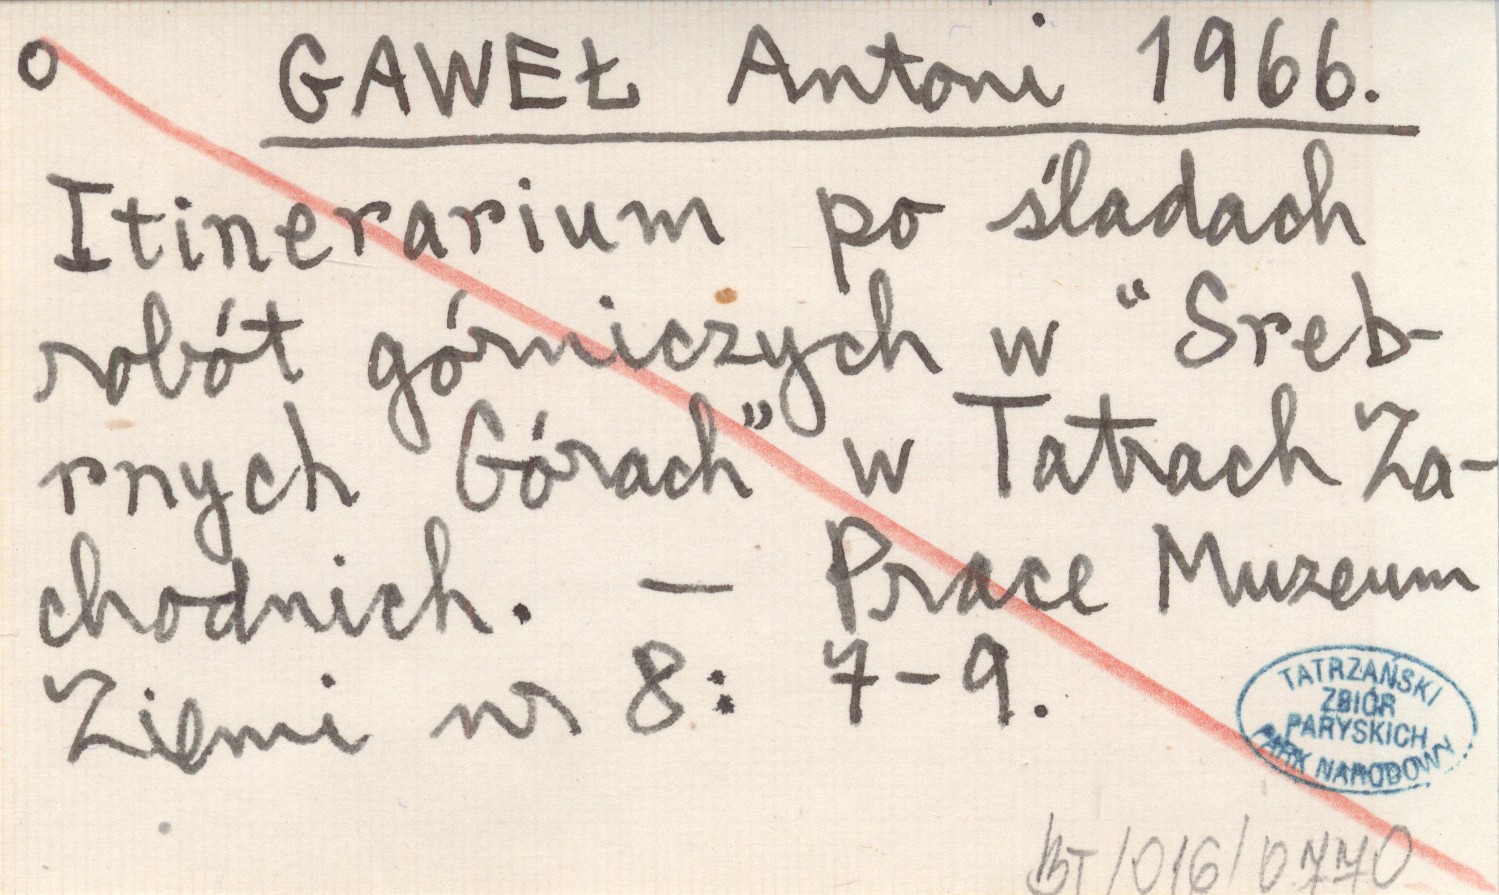 o GAWEŁ Antoni 1966.
Itinerarium po śladach
robót górniczych w "Sreb-
rnych Górach" w Tatrach Za-
chodnich. — Prace Muzeum
Ziemi nr 8: 7-9.
TATRZAŃSKI
ZBIÓR
PARYSKICH
PARK NARODOWY
BT/016/0770